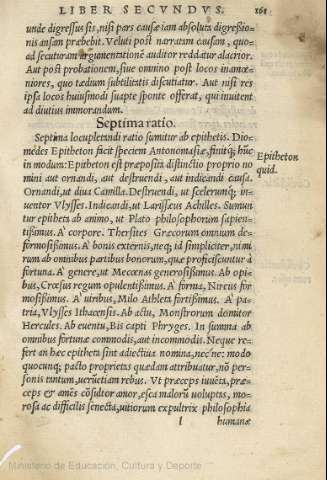 LIBER SECVNDVS. 161
unde digressus sis, nisi pars causæ iam absoluta digressio-
nis ansam præbebit. Veluti post narratam causam, quo-
ad secuturam argumentationē auditor reddatur alacrior.
Aut post probationem, siue omnino post locos inamœ-
niores, quo tædium subtilitatis discutiatur. Aut nisi res
ipsa locos huiusmodi suapte sponte offerat, qui inuitent
ad diutius immorandum.
Septima ratio.
Septima locupletandi ratio sumitur ab epithetis. Dio-
medes Epitheton facit speciem Antonomasiæ, finitq; hūc
in modum: Epitheton est præposita distinctio proprio no
mini aut ornandi, aut destruendi, aut indicandi causa.
Ornandi, ut dius Camilla. Destruendi, ut scelerumq; in-
uentor Vlysses. Indicandi, ut Larissæus Achilles. Sumun
tur epitheta ab animo, ut Plato philosophorum sapien-
tissimus. A' corpore. Thersites Græcorum omnium de-
formosissimus. A' bonis externis, neq; id simpliciter, nimi
rum ab omnibus partibus bonorum, quæ proficiscuntur à
fortuna. A' genere, ut Mecœnas generosissimus. Ab opi-
bus, Crœsus regum opulentissimus. A' forma, Nireus for
mosissimus. A' uiribus, Milo Athleta fortissimus. A' pa-
tria, Vlysses Ithacensis. Ab actu, Monstrorum domitor
Hercules. Ab euentu, Bis capti Phryges. In summa ab
omnibus fortunæ commodis, aut incommodis. Neque re-
fert an hæc epitheta sint adiectiua nomina, nec'ne: modo
quocunq; pacto proprietas quædam attribuatur, nō per-
sonis tantum, uerūetiam rebus. Vt præceps iuuēta, præ-
ceps & amēs cōsiditor amor, esca malorū uoluptas, mo-
rosa ac difficilis senecta, uitiorum expultrix philosophia
l humanæ
Epitheton
quid.
Ministerio de Educación, Cultura y Deporte